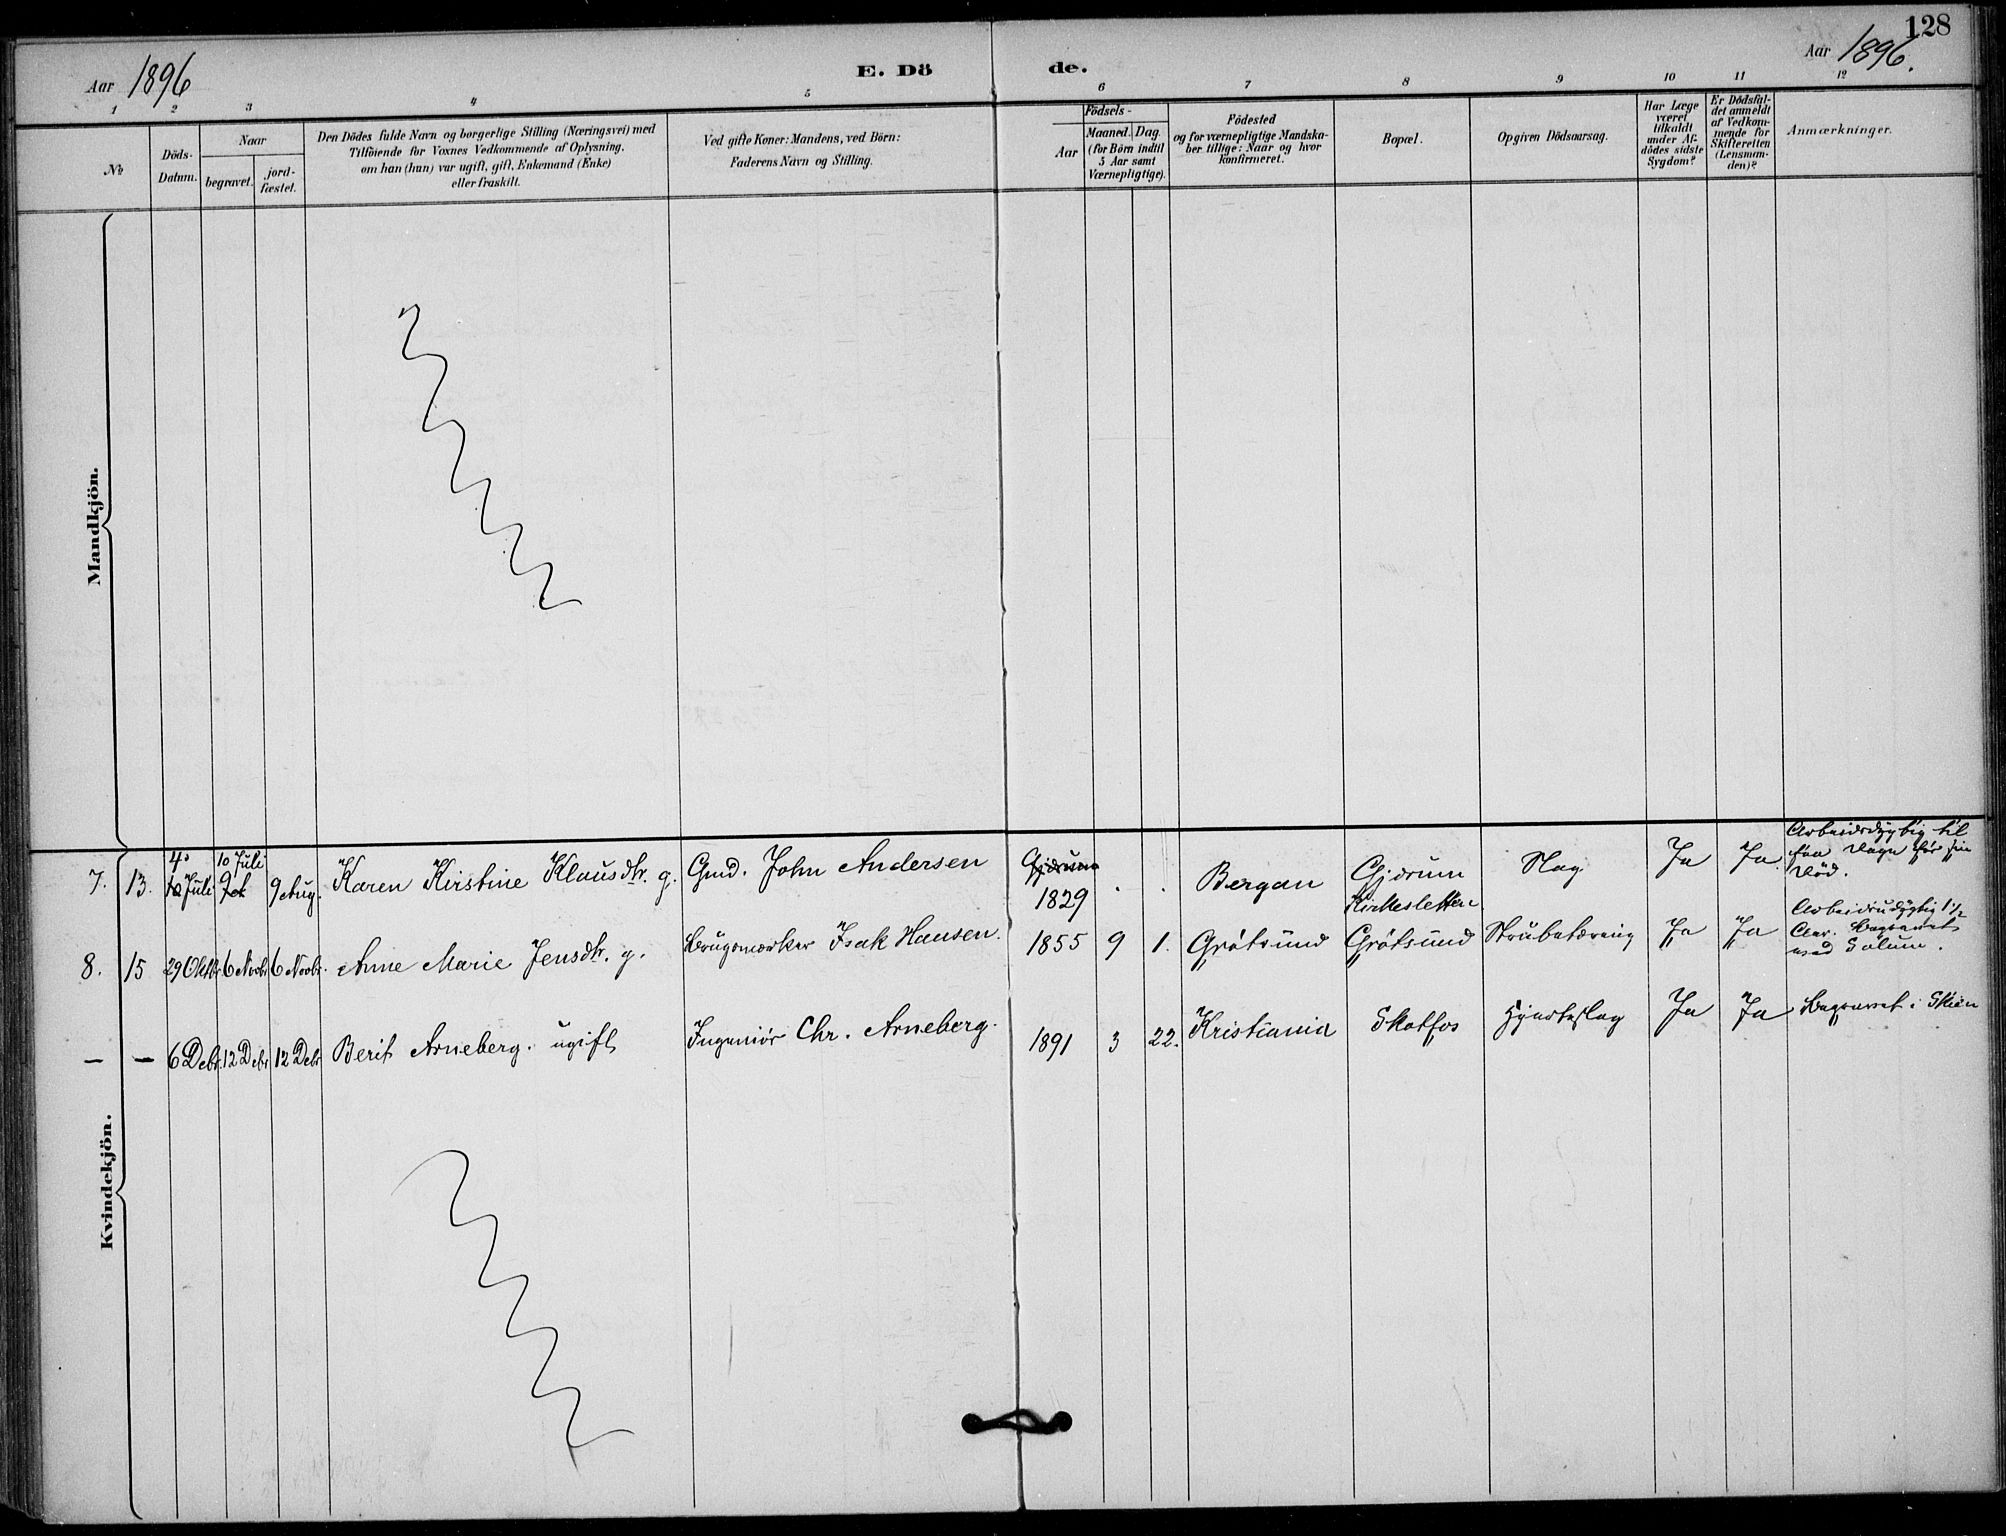 128
Aar 1896
E. Dö de.
Aar 1896.
1 2 3 4 5 6 7 8 9 10 11 12
No
Döds-
Datum.
Naar
begravet.
jord-
fæstet.
Den Dödes fulde Navn og borgerlige Stilling (Næringsvei) med
Tilföiende for Voxnes Vedkommende af Oplysning,
om han (hun) var ugift, gift, Enkemand (Enke)
eller fraskilt.
Ved gifte Koner: Mandens, ved Börn:
Faderens Navn og Stilling.
Födsels-
Aar
Maaned. Dag.
(for Börn indtil
5 Aar samt
Værnepligtige).
Födested
og for værnepligtige Mandska-
ber tillige: Naar og hvor
konfirmeret.
Bopæl.
Opgiven Dödsaarsag.
Har Læge
været
tilkaldt
under Af-
dödes sidste
Sygdom?
Er Dödsfal-
det anmeldt
af Vedkom-
mende for
Skifteretten
(Lensman-
den)?
Anmærkninger.
Mandkjön.
Kvindekjön.
7. 13. 4 Juli 10 Juli 9 Aug. Karen Kirstine Klausdtr. g. Gmd. John Andersen Gjdrum 1829 . . Bergan Gjdrum Kirkesletten Slag Ja Ja
Arbeidsdygtig til
faa Dage før sin
Død.
8. 15 29 Oktbr 6 Novbr 6 Novbr. Anne Marie Jensdtr. g. Brugsmærker Isak Hansen. 1855 9 1. Grøtsund Grøtsund Strubetæring Ja Ja
Arbeidsudygtig 1 1/2
Aar. Begravet
ved Solum.
— — 6 Debr. 12 Debr 12 Debr Berit Arneberg. ugift Ingeniør Chr. Arneberg. 1891 3 22. Kristiania Skotfos Hjerteslag Ja Ja Begravet i Skien